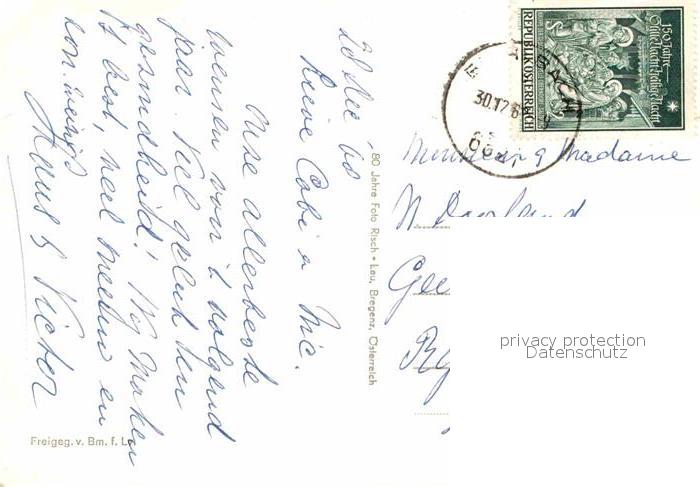 28 Dec '68
Lieve Cobi en Nic.
Onze allerbeste
wensen voor 't volgend
jaar. Veel geluk en
gezondheid! Wij maken
't best, veel meeuw en
zon. weinig
Annus & Victor
Freigeg. v. Bm. f. L
80 Jahre Foto Risch • Lau, Bregenz, Österreich
150 Jahre
Stille Nacht, heilige Nacht
REPUBLIK ÖSTERREICH
30.12.6
Monsieur & Madame
N
Gee
Ry
privacy protection
Datenschutz